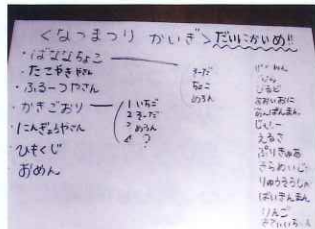 ＜なつまつり かいぎ＞ だいにかいめ!!
・ばななちょこ
・たこやきやさん
・ふるーつやさん
・かきごおり
・にんぎょうやさん
ひもくじ
おめん
1 いちご
2 そーだ
3 めろん
4 ?
そーだ
ちょこ
めろん
あおいおに
あんぱんまん
じんべー
えるさ
ぷりきゅあ
きらめいじゃー
りゅうそうじゃー
ばいきんまん
りんご